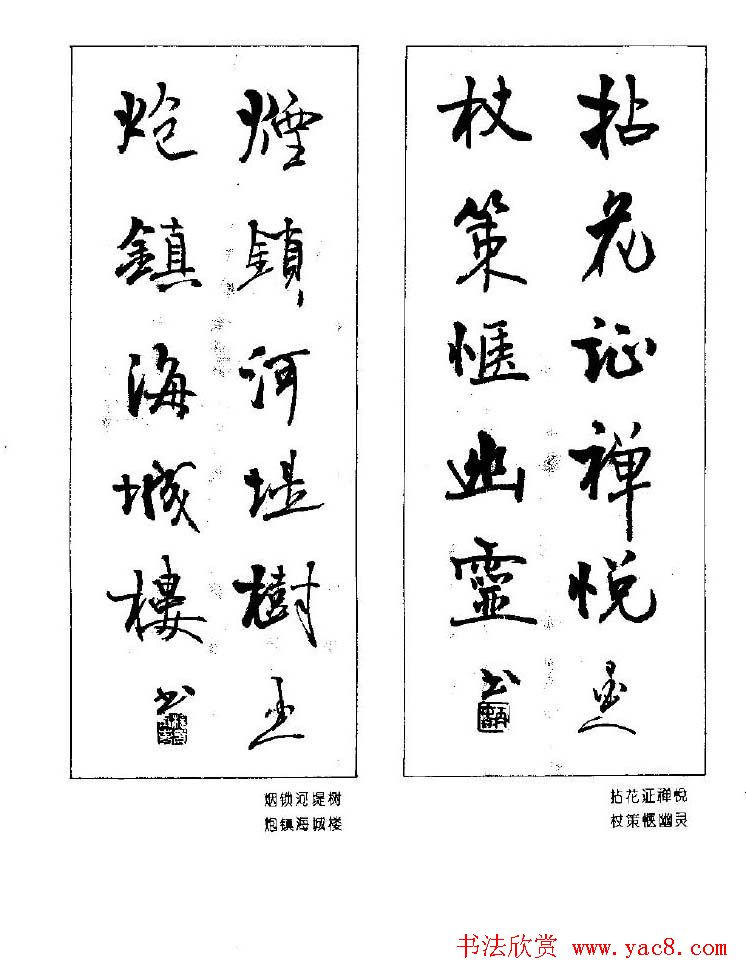 拈花证禅悦
杖策愜幽靈
书
煙鎖河堤樹
炮鎮海城樓
书
拈花证禅悦
杖策惬幽灵
烟锁河堤树
炮镇海城楼
书法欣赏 www.yac8.com